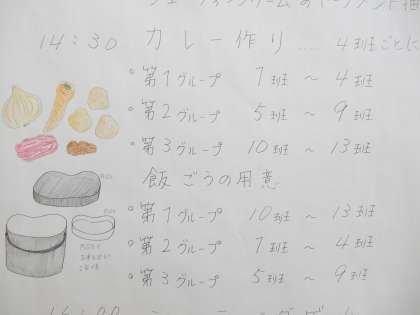 14:30 カレー作り.... 4班ごとに
○第1グループ 1班 ~ 4班
○第2グループ 5班 ~ 9班
○第3グループ 10班 ~ 13班
飯ごうの用意
○第1グループ 10班 ~ 13班
○第2グループ 1班 ~ 4班
○第3グループ 5班 ~ 9班